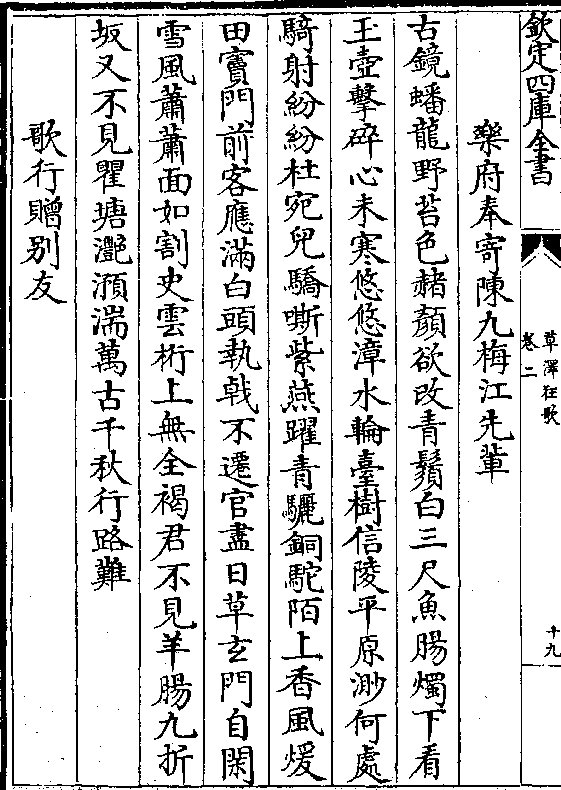 欽定四庫全書
草澤狂歌
卷二
十九
樂府奉寄陳九梅江先輩
古鏡蟠龍野苔色赭顏欲改青鬚白三尺魚腸燭下看
玉壺擊碎心未寒悠悠漳水輪臺樹信陵平原渺何處
騎射紛紛杜宛兒驕嘶紫燕躍青驪銅駝陌上香風煖
田竇門前客應滿白頭執戟不遷官盡日草玄門自閑
雪風蕭蕭面如割史雲桁上無全褐君不見羊腸九折
坂又不見瞿塘灔澦湍萬古千秋行路難
歌行贈别友